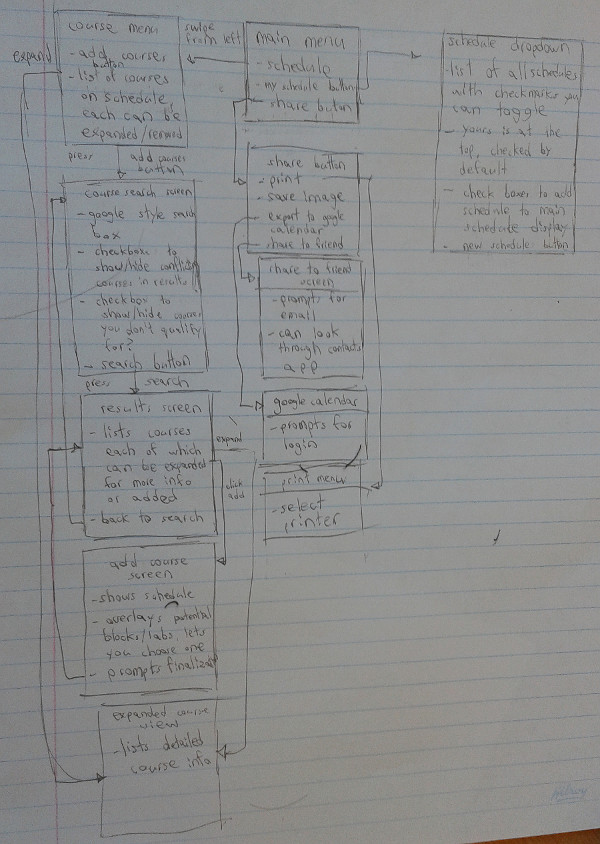 course menu
- add courses
button
- list of courses
on schedule,
each can be
expanded/removed
expand
swipe
from left
main menu
- schedule
- my schedule button
- share button
schedule dropdown
- list of all schedules
with checkmarks you
can toggle
- yours is at the
top, checked by
default
- check boxes to add
schedule to main
schedule display
- new schedule button
press
add courses
button
share button
- print
- save image
- export to google
calendar
- share to friend
course search screen
- google style search
box
- checkbox to
show/hide conflicting
courses in results
- checkbox to
show/hide courses
you don't qualify
for?
- search button
share to friend
screen
- prompts for
email
- can look
through contacts
app
press
search
results screen
- lists courses
each of which
can be expanded
for more info
or added
- back to search
expand
click
add
google calendar
- prompts for
login
print menu
- select
printer
add course
screen
- shows schedule
- overlays potential
blocks/labs, lets
you choose one
- prompts finalize
expanded course
view
- lists detailed
course info